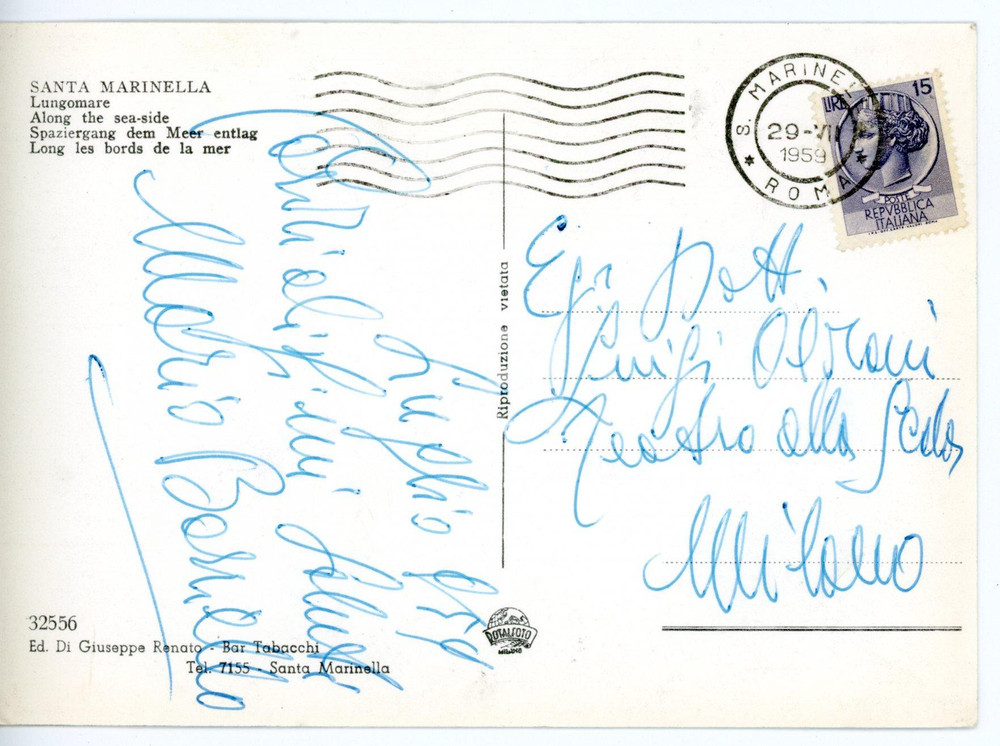 SANTA MARINELLA
Lungomare
Along the sea-side
Spaziergang dem Meer entlag
Long les bords de la mer
Luglio 959
Cordialissimi saluti
Mario Borriello
32556
Ed. Di Giuseppe Renato - Bar Tabacchi
Tel. 7155 - Santa Marinella
Riproduzione vietata
ROTALFOTO
MILANO
S. MARINELLA
29-VII
1959
* ROMA *
LIRE 15
POSTE
REPVBBLICA
ITALIANA
Egr. Dott.
Luigi Oldani
Teatro alla Scala
Milano